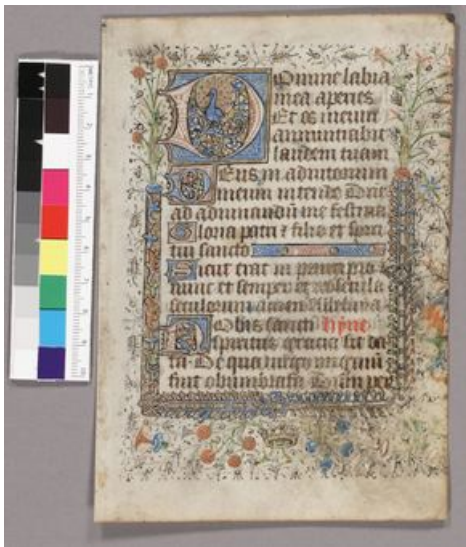 Domine labia
mea aperies
Et os meum
annuntiabit
laudem tuam
Deus in adiutorium
meum intende Dne
ad adiuuandum me festina
Gloria patri & filio et spiri
tui sancto
Sicut erat in
nunc et semper et in secula
seculorum amen
Nobis sancti hymͨ
spiritus gracia sit da
ta De qua virgo
fuit obumbrata